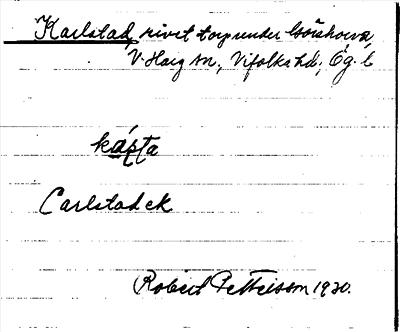 Karlstad, rivet torp under
V. Harg sn, Vifolka hd, Ög. l
kápta
Carlstad ek
Robert Pettersson 1930.